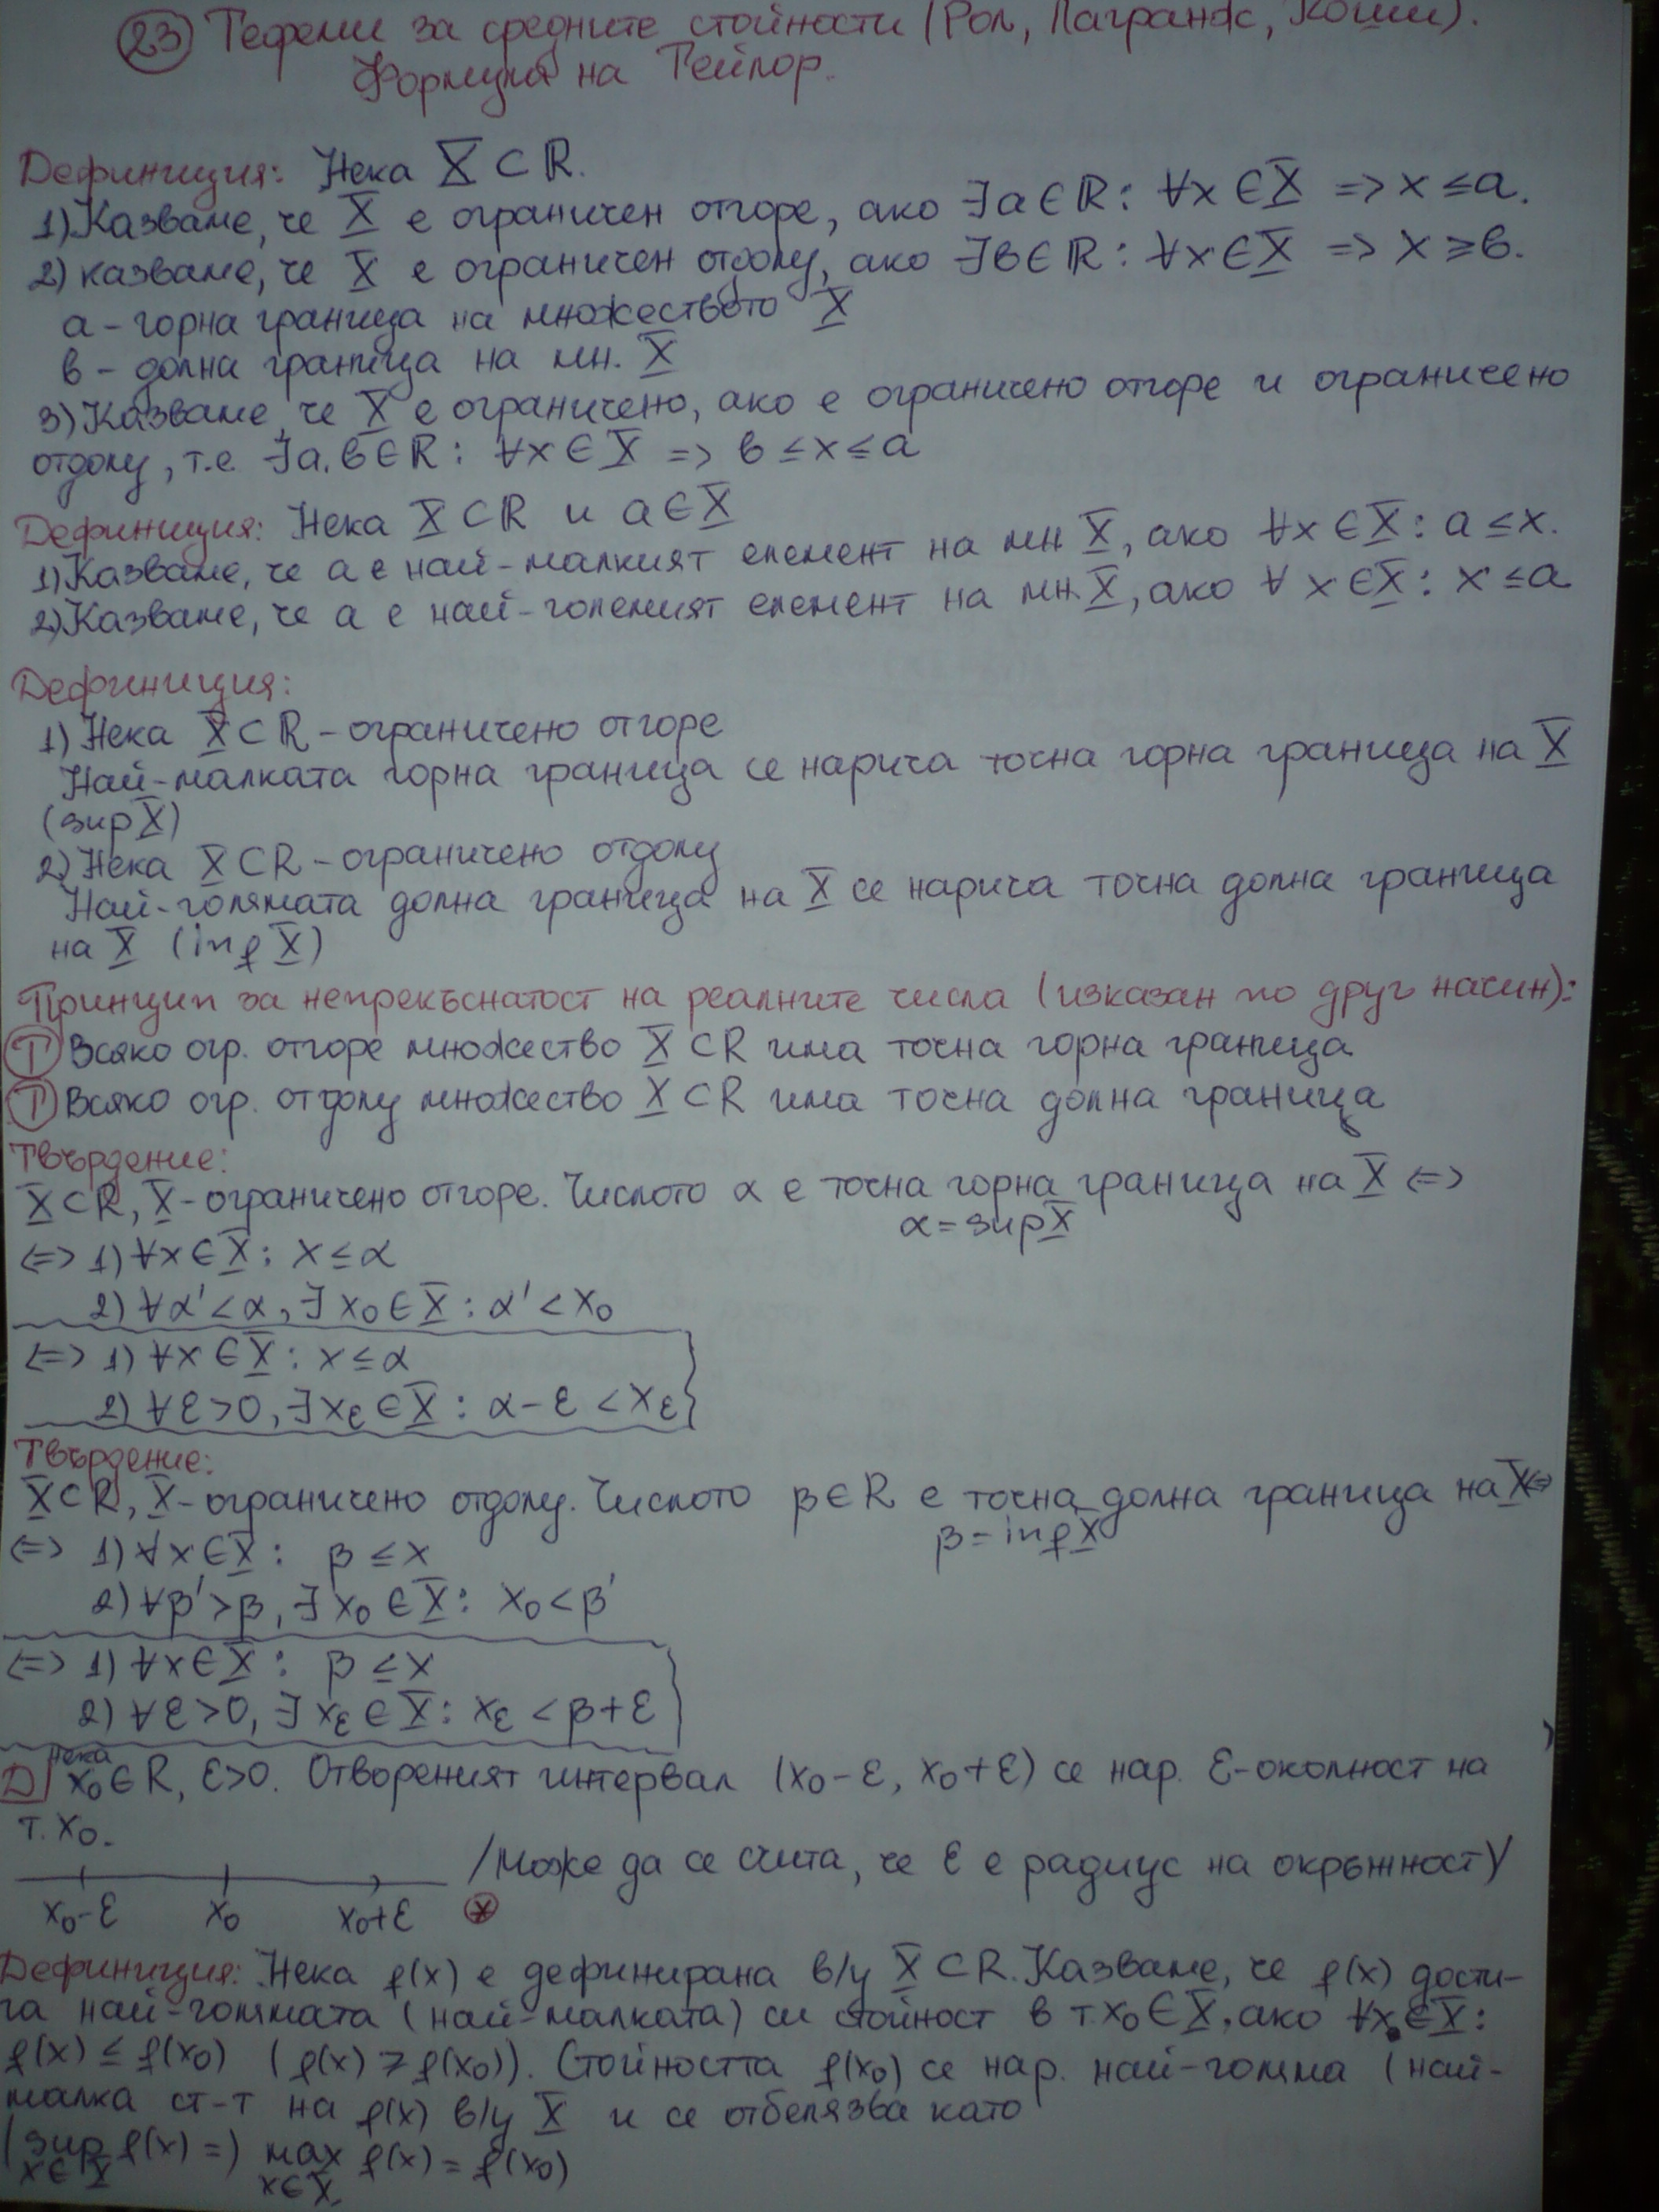 23 Теореми за средните стойности (Рол, Лагранж, Коши).
Формула на Тейлор.
Дефиниция: Нека X ⊂ R.
1) Казваме, че X е ограничен отгоре, ако ∃a∈R: ∀x∈X => x ≤ a.
2) казваме, че X е ограничен отдолу, ако ∃b∈R: ∀x∈X => x ≥ b.
a – горна граница на множеството X
b – долна граница на мн. X
3) Казваме, че X е ограничено, ако е ограничено отгоре и ограничено
отдолу, т.е. ∃a,b∈R: ∀x∈X => b ≤ x ≤ a
Дефиниция: Нека X⊂R и a∈X
1) Казваме, че a е най-малкият елемент на мн X, ако ∀x∈X: a ≤ x.
2) Казваме, че a е най-големият елемент на мн. X, ако ∀x∈X: x ≤ a
Дефиниция:
1) Нека X⊂R – ограничено отгоре
Най-малката горна граница се нарича точна горна граница на X
(sup X)
2) Нека X⊂R – ограничено отдолу
Най-голямата долна граница на X се нарича точна долна граница
на X (inf X)
Принцип за непрекъснатост на реалните числа (изказан по друг начин):
Т Всяко огр. отгоре множество X⊂R има точна горна граница
Т Всяко огр. отдолу множество X⊂R има точна долна граница
Твърдение:
X⊂R, X – ограничено отгоре. Числото α е точна горна граница на X <=>
α = sup X
<=> 1) ∀x∈X: x ≤ α
2) ∀α' < α, ∃x₀∈X: α' < x₀
<=> 1) ∀x∈X: x ≤ α
2) ∀ε>0, ∃xε∈X: α-ε < xε
Твърдение:
X⊂R, X – ограничено отдолу. Числото β∈R е точна долна граница на X <=>
β = inf X
<=> 1) ∀x∈X: β ≤ x
2) ∀β' > β, ∃x₀∈X: x₀ < β'
<=> 1) ∀x∈X: β ≤ x
2) ∀ε>0, ∃xε∈X: xε < β+ε
Д Нека x₀∈R, ε>0. Отвореният интервал (x₀-ε, x₀+ε) се нар. ε-околност на
т. x₀.
/Може да се счита, че ε е радиус на окръжност/
x₀-ε x₀ x₀+ε *
Дефиниция: Нека f(x) е дефинирана в/у X⊂R. Казваме, че f(x) дости-
га най-голямата (най-малката) си стойност в т. x₀∈X, ако ∀x∈X:
f(x) ≤ f(x₀) (f(x) ≥ f(x₀)). Стойността f(x₀) се нар. най-голяма (най-
малка ст-т на f(x) в/у X и се отбелязва като
(sup f(x) =) max f(x) = f(x₀)
x∈X x∈X